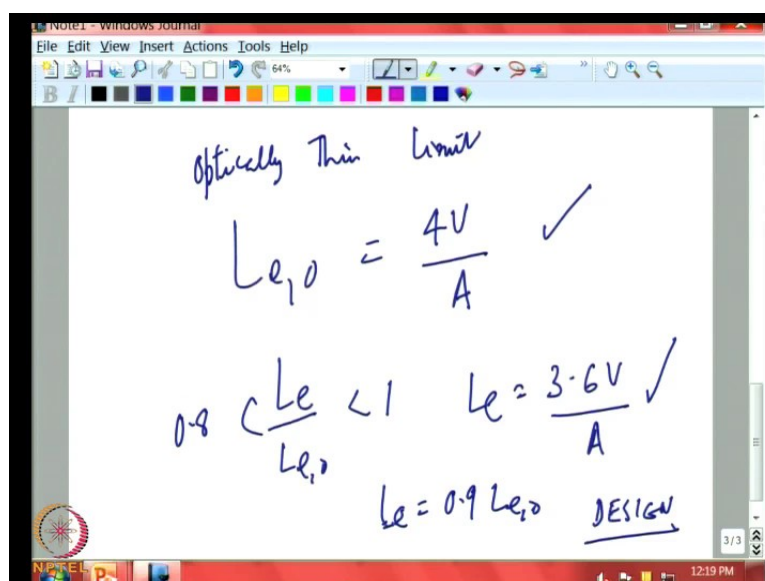 Note1 - Windows Journal
File Edit View Insert Actions Tools Help
64%
B I
Optically Thin Limit
Le,0 = 4V / A ✓
0.8 < Le / Le,0 < 1 Le = 3.6V / A ✓
Le = 0.9 Le,0 DESIGN
3/3
NPTEL
12:19 PM